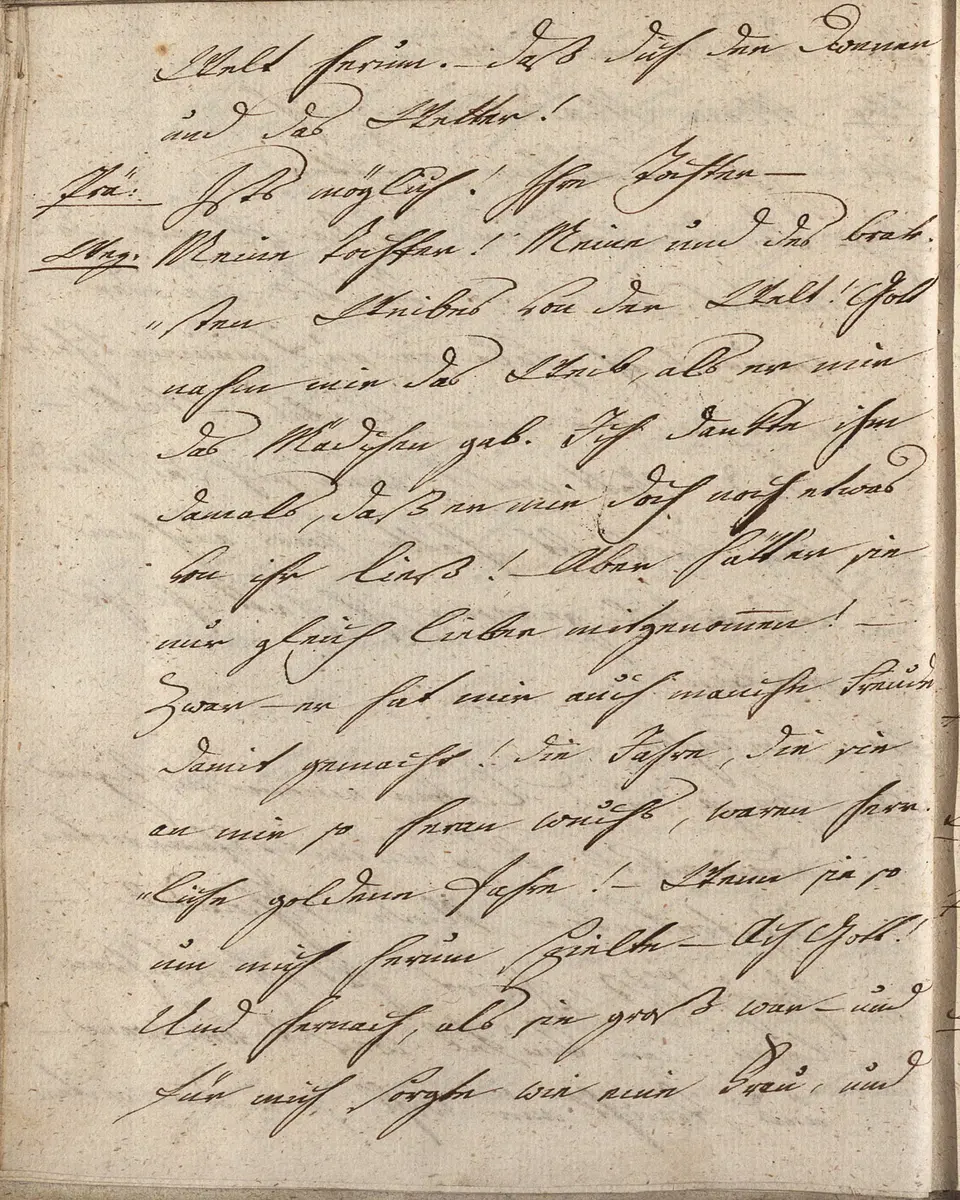 Welt herum. – daß dich der Donner
und das Wetter!
Prä: Ists möglich! Ihre Tochter –
Weg: Meine Tochter! Meine und des brav-
"sten Weibes von der Welt! Gott
nahm mir das Weib, als er mir
das Mädchen gab. Ich dankte ihm
damals, daß er mir doch noch etwas
von ihr ließ! – Aber hätt er sie
nur gleich lieber mitgenom̅en! –
Zwar – er hat mir auch manche Freude
damit gemacht! die Jahre, die sie
an mir so heran wuchs, waren herr-
"liche goldene Jahre! – Wenn sie so
um mich herum spielte – Ach Gott!
Und hernach, als sie groß war – und
für mich sorgte wie eine Frau, und